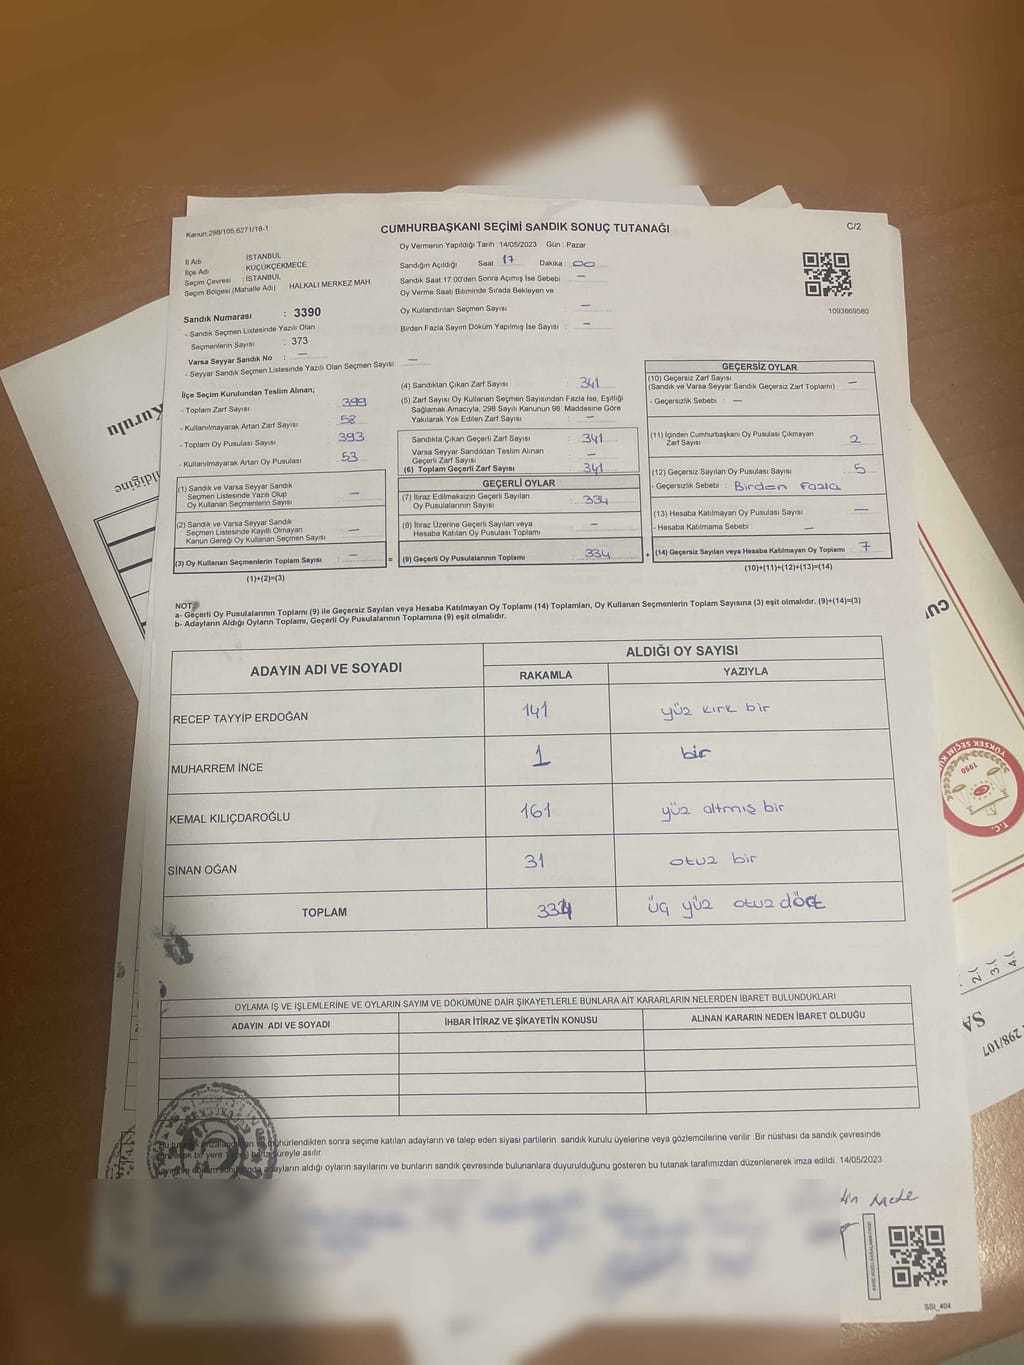 Kanun:298/105,6271/18-1
CUMHURBAŞKANI SEÇİMİ SANDIK SONUÇ TUTANAĞI
C/2
Oy Vermenin Yapıldığı Tarih :14/05/2023 Gün : Pazar
İl Adı İSTANBUL
İlçe Adı KÜÇÜKÇEKMECE
Seçim Çevresi : İSTANBUL
Seçim Bölgesi (Mahalle Adı) HALKALI MERKEZ MAH.
Sandığın Açıldığı Saat 17 Dakika : 00
Sandık Saat 17:00'den Sonra Açımış İse Sebebi : —
Oy Verme Saati Bitiminde Sırada Bekleyen ve
Oy Kullandırılan Seçmen Sayısı : —
Birden Fazla Sayım Döküm Yapılmış İse Sayısı : —
1093869580
Sandık Numarası : 3390
- Sandık Seçmen Listesinde Yazılı Olan
Seçmenlerin Sayısı : 373
Varsa Seyyar Sandık No : —
- Seyyar Sandık Seçmen Listesinde Yazılı Olan Seçmen Sayısı: —
İlçe Seçim Kurulundan Teslim Alınan;
- Toplam Zarf Sayısı : 399
- Kullanılmayarak Artan Zarf Sayısı : 58
- Toplam Oy Pusulası Sayısı : 393
- Kullanılmayarak Artan Oy Pusulası : 53
(1) Sandık ve Varsa Seyyar Sandık
Seçmen Listesinde Yazılı Olup
Oy Kullanan Seçmenlerin Sayısı —
(2) Sandık ve Varsa Seyyar Sandık
Seçmen Listesinde Kayıtlı Olmayan
Kanun Gereği Oy Kullanan Seçmen Sayısı —
(3) Oy Kullanan Seçmenlerin Toplam Sayısı : —
(1)+(2)=(3)
=
(4) Sandıktan Çıkan Zarf Sayısı : 341
(5) Zarf Sayısı Oy Kullanan Seçmen Sayısından Fazla İse, Eşitliği
Sağlamak Amacıyla, 298 Sayılı Kanunun 98. Maddesine Göre
Yakılarak Yok Edilen Zarf Sayısı : —
Sandıkta Çıkan Geçerli Zarf Sayısı : 341
Varsa Seyyar Sandıktan Teslim Alınan
Geçerli Zarf Sayısı : —
(6) Toplam Geçerli Zarf Sayısı : 341
GEÇERLİ OYLAR
(7) İtiraz Edilmeksizin Geçerli Sayılan
Oy Pusulalarının Sayısı : 334
(8) İtiraz Üzerine Geçerli Sayılan veya
Hesaba Katılan Oy Pusulası Toplamı : —
(9) Geçerli Oy Pusulalarının Toplamı : 334
+
GEÇERSİZ OYLAR
(10) Geçersiz Zarf Sayısı
(Sandık ve Varsa Seyyar Sandık Geçersiz Zarf Toplamı) : —
- Geçersizlik Sebebi : —
(11) İçinden Cumhurbaşkanı Oy Pusulası Çıkmayan
Zarf Sayısı : 2
(12) Geçersiz Sayılan Oy Pusulası Sayısı : 5
- Geçersizlik Sebebi : Birden Fazla
(13) Hesaba Katılmayan Oy Pusulası Sayısı : —
- Hesaba Katılmama Sebebi : —
(14) Geçersiz Sayılan veya Hesaba Katılmayan Oy Toplamı : 7
(10)+(11)+(12)+(13)=(14)
NOT:
a- Geçerli Oy Pusulalarının Toplamı (9) ile Geçersiz Sayılan veya Hesaba Katılmayan Oy Toplamı (14) Toplamları, Oy Kullanan Seçmenlerin Toplam Sayısına (3) eşit olmalıdır. (9)+(14)=(3)
b- Adayların Aldığı Oyların Toplamı, Geçerli Oy Pusulalarının Toplamına (9) eşit olmalıdır.
ADAYIN ADI VE SOYADI ALDIĞI OY SAYISI
RAKAMLA YAZIYLA
RECEP TAYYİP ERDOĞAN 141 yüz kırk bir
MUHARREM İNCE 1 bir
KEMAL KILIÇDAROĞLU 161 yüz altmış bir
SİNAN OĞAN 31 otuz bir
TOPLAM 334 üç yüz otuz dört
OYLAMA İŞ VE İŞLEMLERİNE VE OYLARIN SAYIM VE DÖKÜMÜNE DAİR ŞİKAYETLERLE BUNLARA AİT KARARLARIN NELERDEN İBARET BULUNDUKLARI
ADAYIN ADI VE SOYADI İHBAR İTİRAZ VE ŞİKAYETİN KONUSU ALINAN KARARIN NEDEN İBARET OLDUĞU
Bu mühürlendikten sonra seçime katılan adayların ve talep eden siyasi partilerin sandık kurulu üyelerine veya gözlemcilerine verilir. Bir nüshası da sandık çevresinde
bir yere süreyle asılır.
adayların aldığı oyların sayılarını ve bunların sandık çevresinde bulunanlara duyurulduğunu gösteren bu tutanak tarafımızdan düzenlenerek imza edildi. 14/05/2023
SSİ_404
Kurulu
T.C.
YÜKSEK SEÇİM
1950
CU
2.(
3.(
4.(
SA
298/107